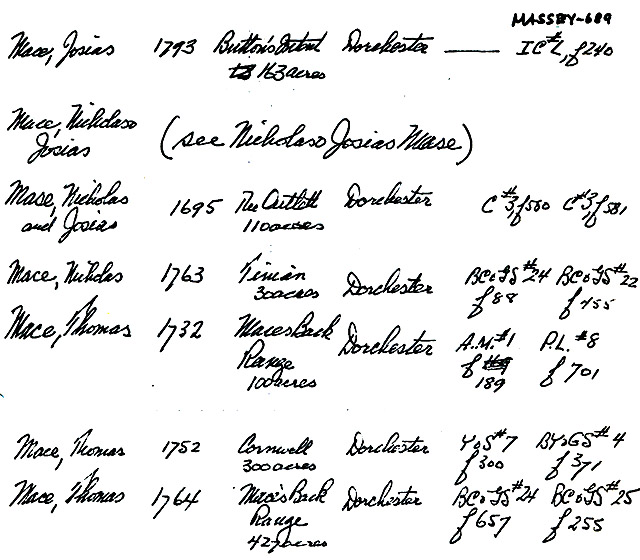 MASSEY-689
Mace, Josias 1793 Button's Dorchester — IC#2, f240
163 acres
Mace, Nicholas
Josias (see Nicholas & Josias Mase)
Mase, Nicholas 1695 The Outlett Dorchester C#3, f580 C#3, f581
and Josias 110 acres
Mace, Nicholas 1763 Timian Dorchester BC&GS#24 BC&GS#22
300 acres f88 f455
Mace, Thomas 1732 Maces Back Dorchester A.M.#1 P.L.#8
Range f 189 f 701
100 acres
Mace, Thomas 1752 Cornwell Dorchester Y&S#7 BY&GS#4
300 acres f300 f371
Mace, Thomas 1764 Mace's Back Dorchester BC&GS#24 BC&GS#25
Range f657 f255
427 acres